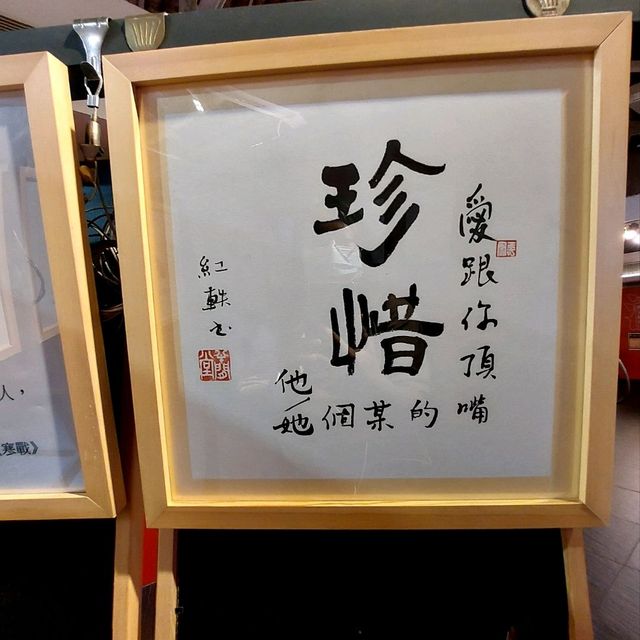 珍惜
愛跟你頂嘴
的某個他/她
紅軼书
人，
寒戰》